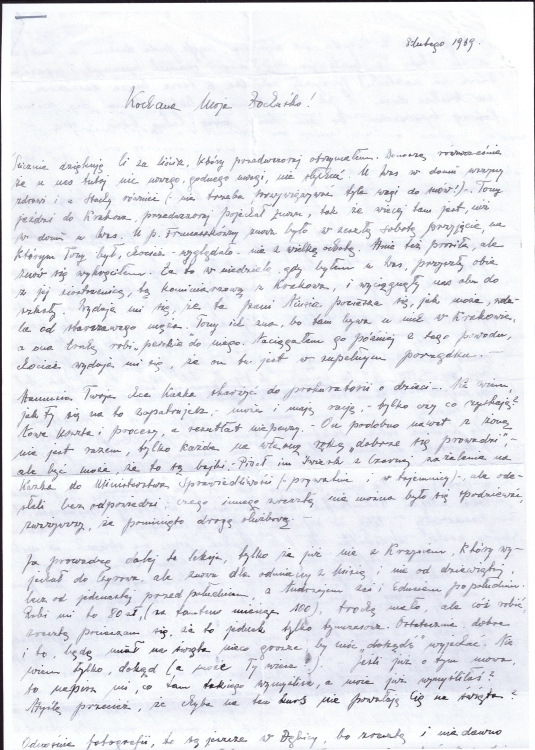 8 lutego 1939.
Kochana Moja Zochuśko!
Ślicznie dziękuję Ci za liścik, który przedwczoraj otrzymałem. Donoszę
że u nas tutaj nic nowego, godnego uwagi, nie słychać. U Was w domu wszyscy
zdrowi i u Stachy również (- nie trzeba przywiązywać tyle wagi do snów!) - Tony
jeździ do Krakowa, przedwczoraj pojechał znowu, tak że więcej tam jest, niż
w domu u Was. U p. znowu było w zeszłą sobotę przyjęcie, na
którym Tony był, chociaż wyglądało - nie z wielką ochotą. Mnie też prosiła, ale
znów się wykręciłem. Za to w niedzielę, gdy byłem u Was, przyszły obie
z jej siostrzenicą, tą z Krakowa, i wyciągnęły nas oba do
szkoły. Wydaje mi się, że ta pani Nusia pociesza się, jak może, zda-
la od starszawego męża. Tony ich zna, bo tam bywa u nich w Krakowie,
a ona trochę robi "perskie" do niego. Zaciągałem go później z tego powodu,
chociaż wydaje mi się, że on tu jest w zupełnym porządku. -
Mamusia Twoja chce Kazka skarżyć do prokuratorii o dzieci. - Nie wiem,
jak Ty się na to zapatrujesz. - może i mają rację, - tylko czy co zyskają?
Nowe koszta i procesy, a rezultat niepewny. - On podobno nawet z żoną
nie jest razem, tylko każde na własną rękę "dobrze się prowadzi" -
ale być może, że to są bajki. - Pisał im z Czarnej zażalenie na
Kazka do Ministerstwa Sprawiedliwości (- prywatnie i w tajemnicy) -, ale ode-
słali bez odpowiedzi; czego innego zresztą nie można było się spodziewać,
zważywszy, że pominięto drogą służbową. -
Ja prowadzę dalej te lekcje, tylko że już nie z Krzysiem, który wy-
jechał do , ale znowu dla odmiany z i nie od dziewiątej,
lecz od jedenastej przed południem, a zaś i Edusiem po południu.
Robi mi to 80 zł, (za tamten miesiąc 100), trochę mało, ale cóż robić,
zresztą pocieszam się, że to jednak tylko tymczasem. Ostatecznie, dobre
i to, będę miał na święta nieco grosza, by móc "dokądś" wyjechać. Nie
wiem tylko, dokąd (a może Ty wiesz?) Jeśli już o tym mowa,
to napisz mi, co tam takiego wymyślisz, a może już wymyśliłaś?
Myślę przecież, że chyba na ten kurs nie powołają Cię na święta?
Odnośnie fotografii, te są jeszcze w Dębicy, bo zresztą i niedawno